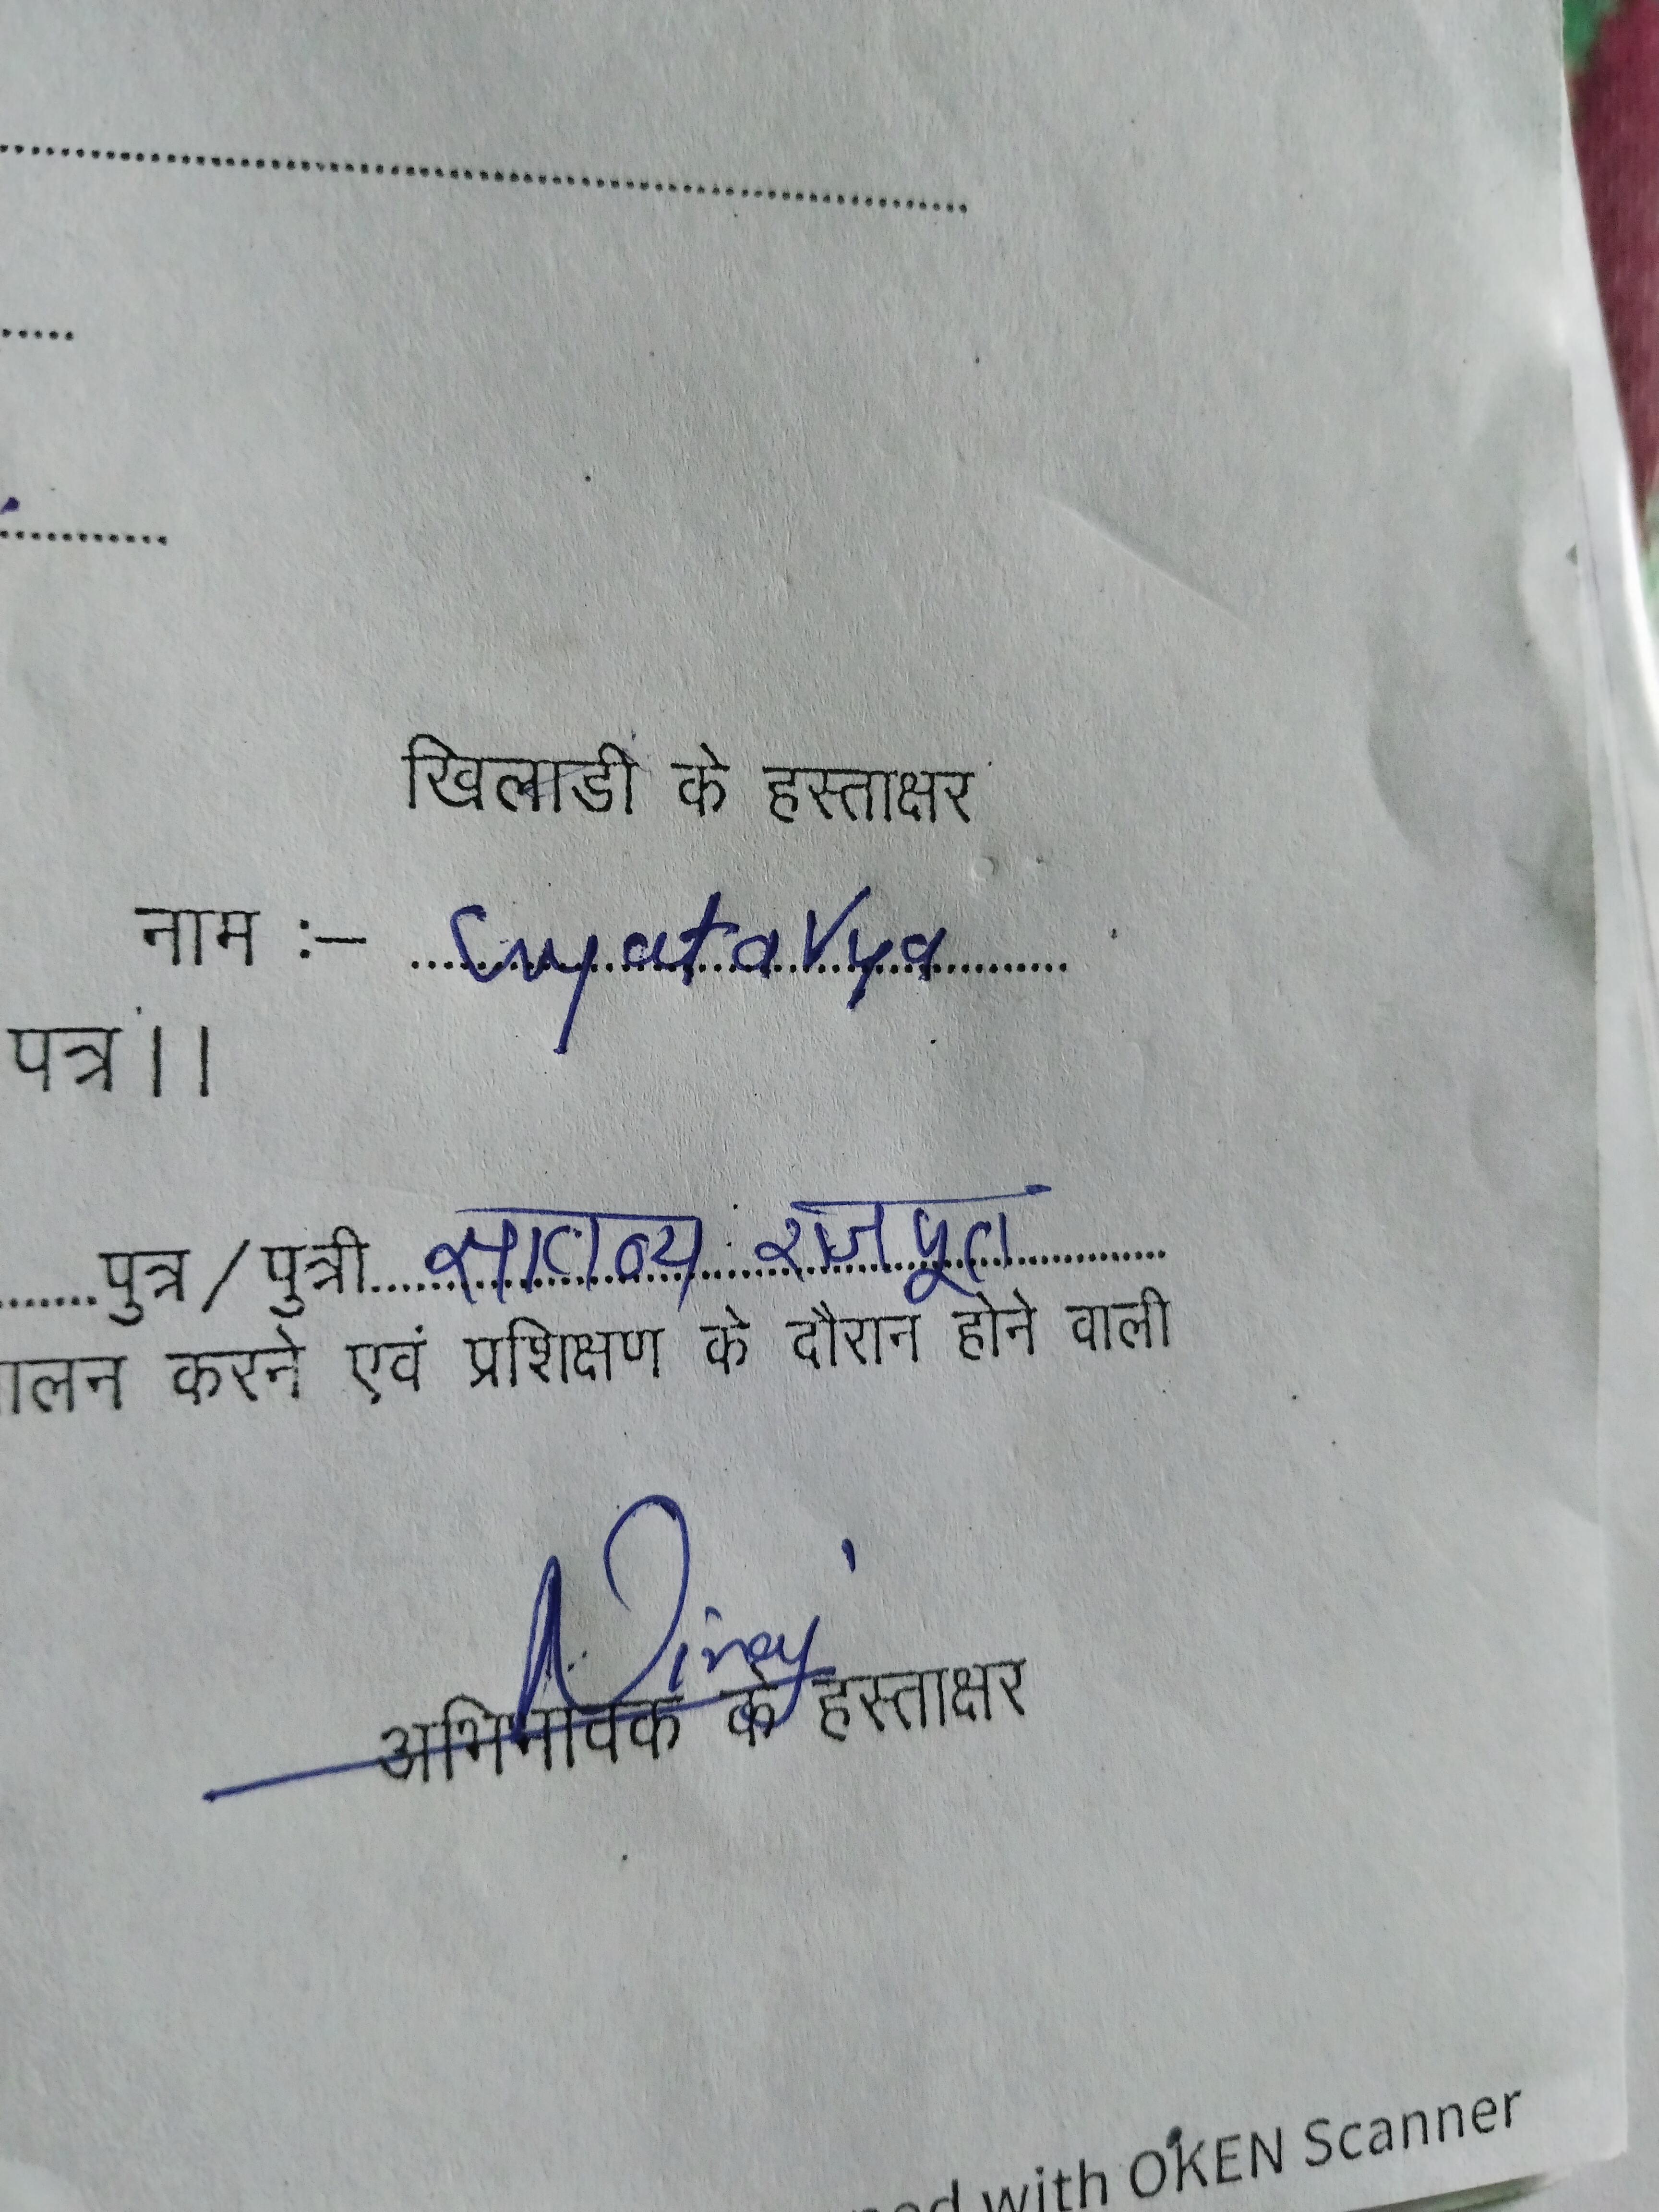 खिलाडी के हस्ताक्षर
नाम :–
पत्र।।
पुत्र/पुत्री सातव्य राजपूत
ालन करने एवं प्रशिक्षण के दौरान होने वाली
अभिभावक के हस्ताक्षर
with OKEN Scanner